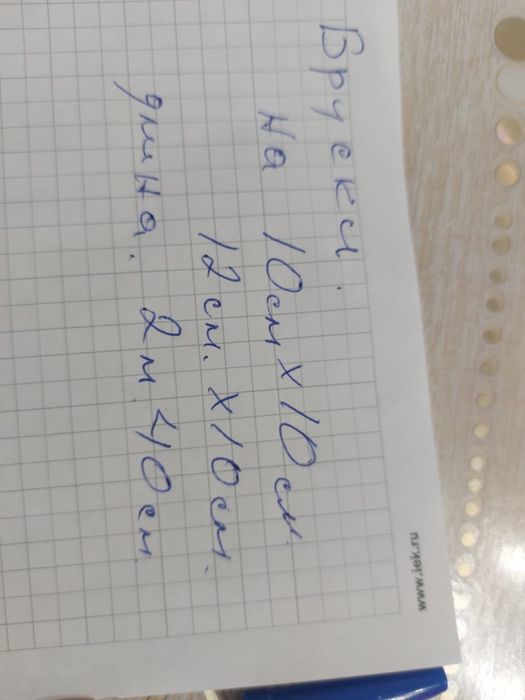 Бруски.
На 10см х 10см.
12см. х 10см.
длина. 2м. 40см.
www.iek.ru